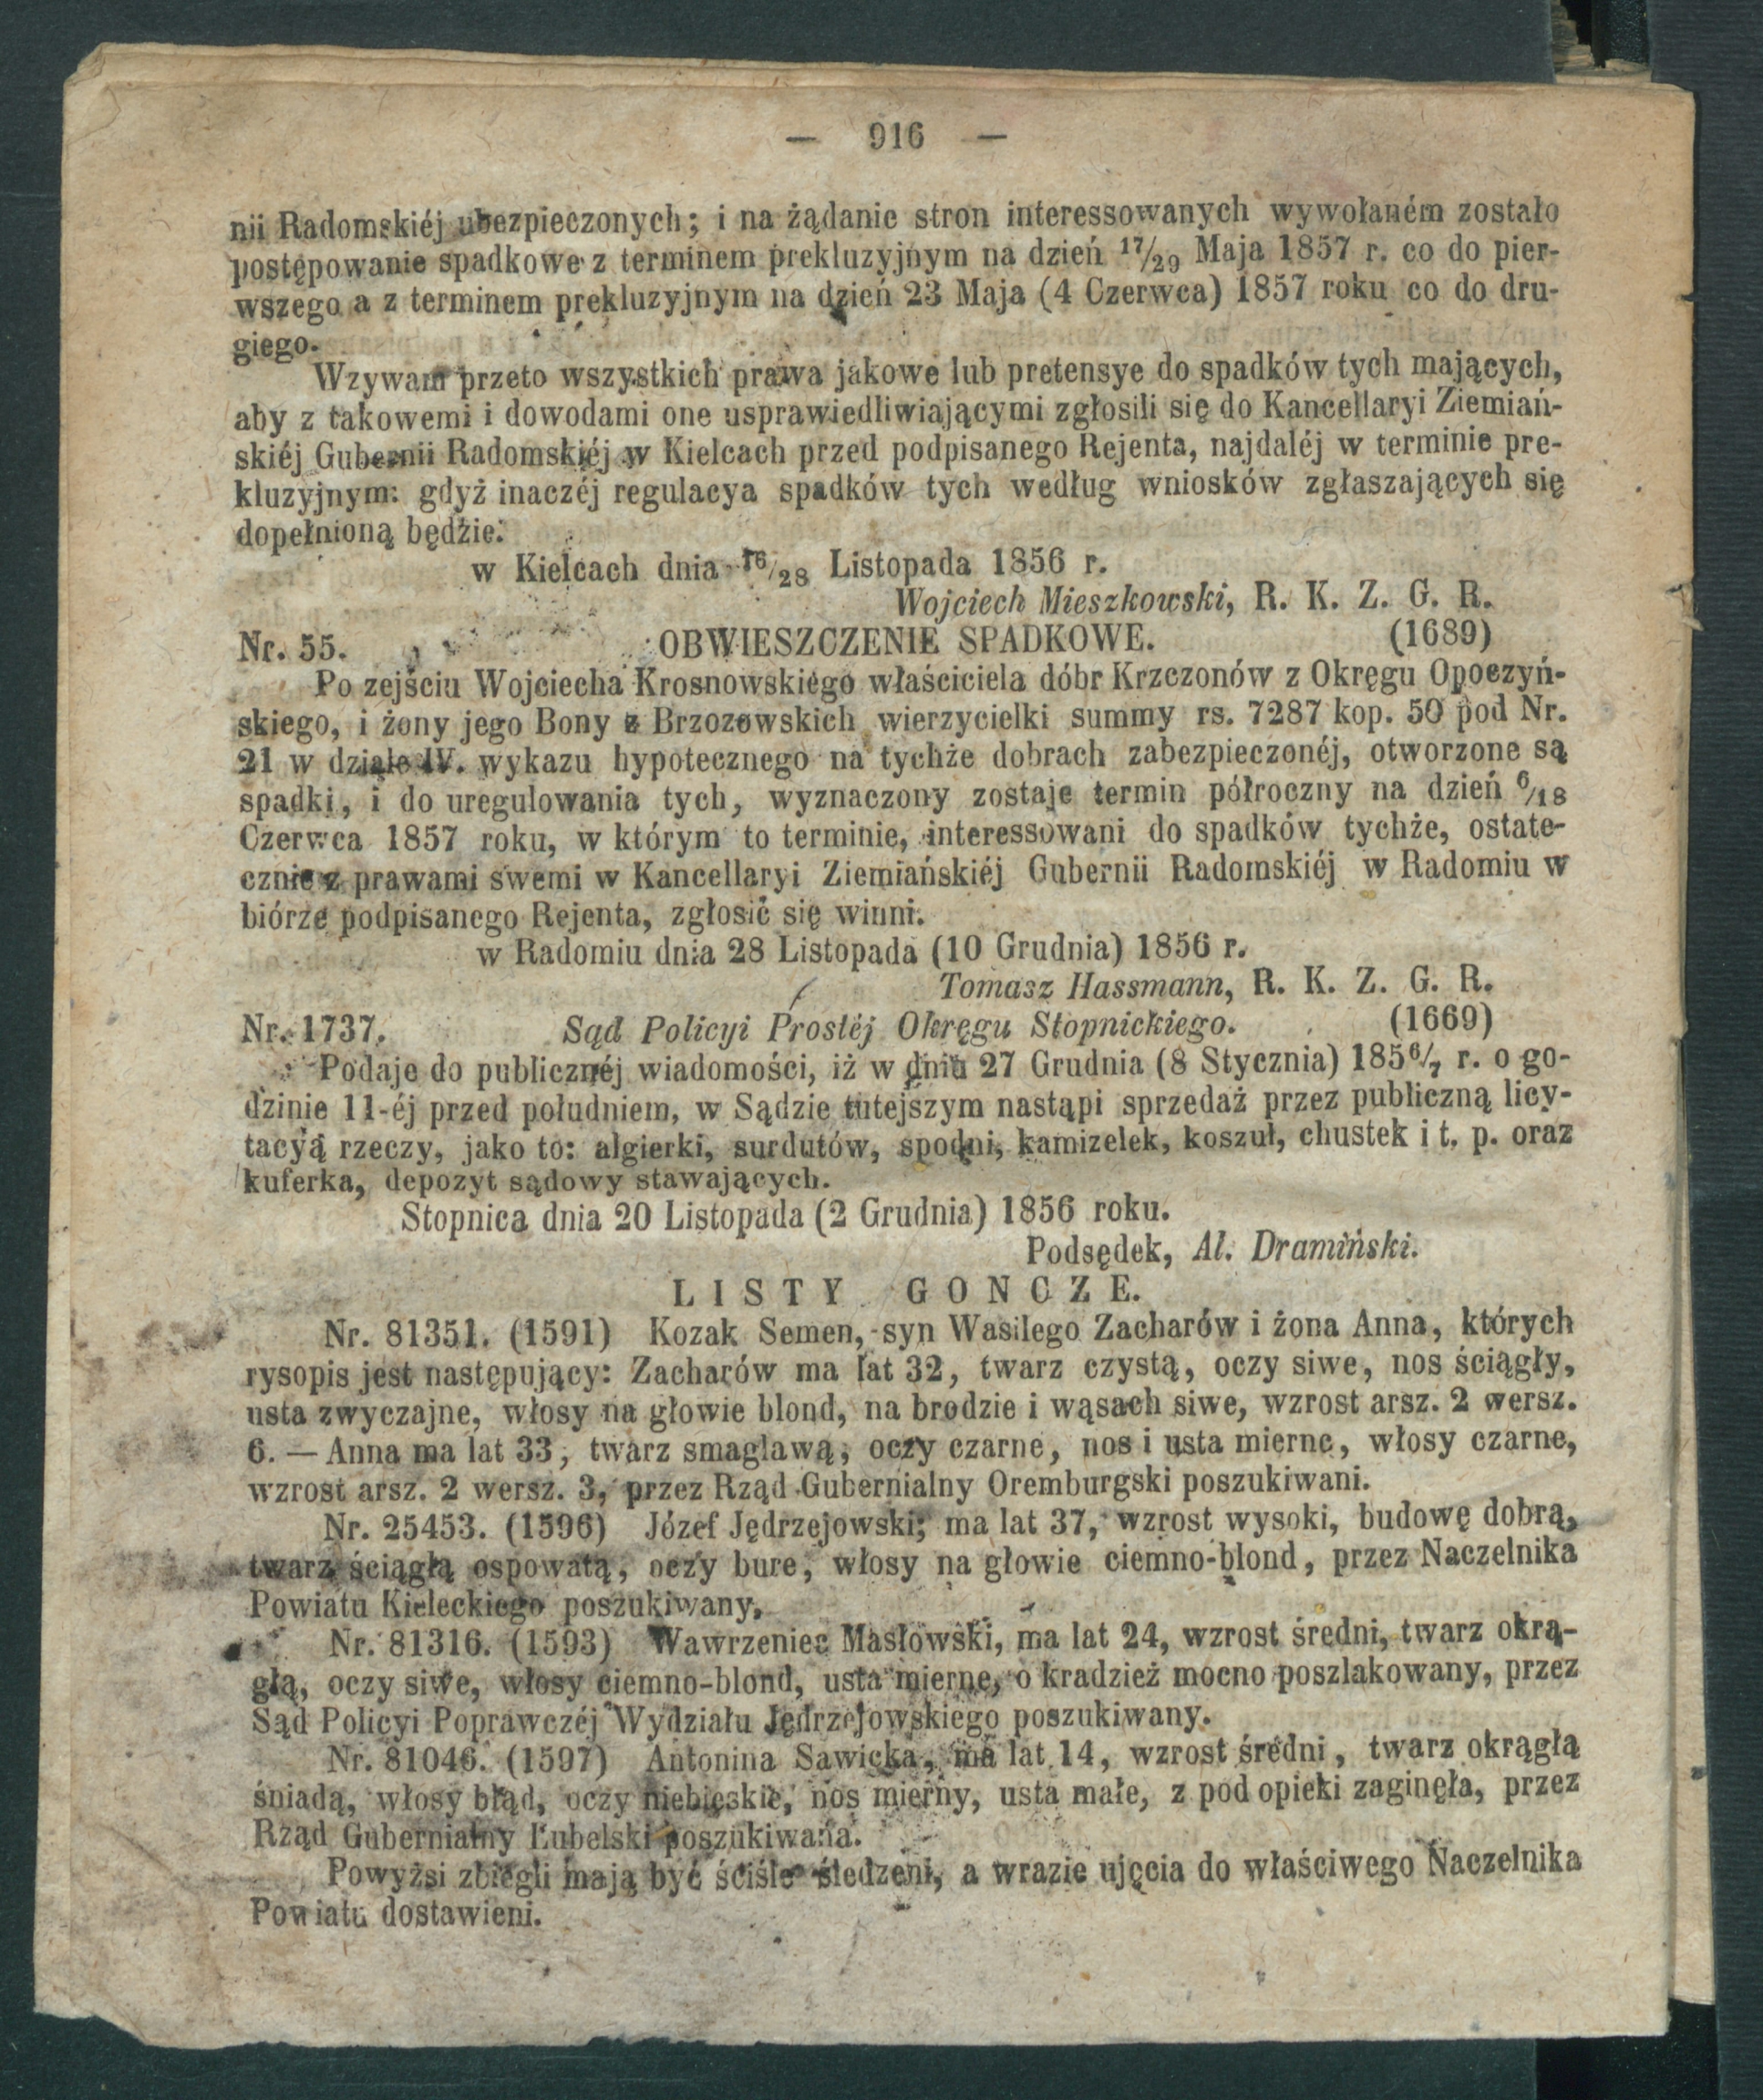 — 916 —
nii Radomskiéj ubezpieczonych; i na żądanie stron interessowanych wywołaném zostało
postępowanie spadkowe z terminem prekluzyjnym na dzień 17/29 Maja 1857 r. co do pier-
wszego a z terminem prekluzyjnym na dzień 23 Maja (4 Czerwca) 1857 roku co do dru-
giego.
Wzywam przeto wszystkich prawa jakowe lub pretensye do spadków tych mających,
aby z takowemi i dowodami one usprawiedliwiającymi zgłosili się do Kancellaryi Ziemiań-
skiéj Gubernii Radomskiéj w Kielcach przed podpisanego Rejenta, najdaléj w terminie pre-
kluzyjnym: gdyż inaczéj regulacya spadków tych według wniosków zgłaszających się
dopełnioną będzie.
w Kielcach dnia 16/28 Listopada 1856 r.
Wojciech Mieszkowski, R. K. Z. G. R.
Nr. 55. OBWIESZCZENIE SPADKOWE. (1689)
Po zejściu Wojciecha Krosnowskiego właściciela dóbr Krzczonów z Okręgu Opoczyń-
skiego, i żony jego Bony z Brzozowskich wierzycielki summy rs. 7287 kop. 50 pod Nr.
21 w dziale IV. wykazu hypotecznego na tychże dobrach zabezpieczonéj, otworzone są
spadki, i do uregulowania tych, wyznaczony zostaje termin półroczny na dzień 6/18
Czerwca 1857 roku, w którym to terminie, interessowani do spadków tychże, ostate-
cznie z prawami swemi w Kancellaryi Ziemiańskiéj Gubernii Radomskiéj w Radomiu w
biórze podpisanego Rejenta, zgłosić się winni.
w Radomiu dnia 28 Listopada (10 Grudnia) 1856 r.
Tomasz Hassmann, R. K. Z. G. R.
Nr. 1737. Sąd Policyi Prostéj Okręgu Stopnickiego. (1669)
Podaje do publicznéj wiadomości, iż w dniu 27 Grudnia (8 Stycznia) 1856/7 r. o go-
dzinie 11-éj przed południem, w Sądzie tutejszym nastąpi sprzedaż przez publiczną licy-
tacyą rzeczy, jako to: algierki, surdutów, spodni, kamizelek, koszul, chustek i t. p. oraz
kuferka, depozyt sądowy stawających.
Stopnica dnia 20 Listopada (2 Grudnia) 1856 roku.
Podsędek, Al. Dramiński.
LISTY GONCZE.
Nr. 81351. (1591) Kozak Semen, syn Wasilego Zacharów i żona Anna, których
rysopis jest następujący: Zacharów ma lat 32, twarz czystą, oczy siwe, nos ściągły,
usta zwyczajne, włosy na głowie blond, na brodzie i wąsach siwe, wzrost arsz. 2 wersz.
6. — Anna ma lat 33, twarz smaglawą, oczy czarne, nos i usta mierne, włosy czarne,
wzrost arsz. 2 wersz. 3, przez Rząd Gubernialny Oremburgski poszukiwani.
Nr. 25453. (1596) Józef Jędrzejowski; ma lat 37, wzrost wysoki, budowę dobrą,
twarz ściągłą ospowatą, oczy bure, włosy na głowie ciemno-blond, przez Naczelnika
Powiatu Kieleckiego poszukiwany.
Nr. 81316. (1593) Wawrzeniec Masłowski, ma lat 24, wzrost średni, twarz okrą-
głą, oczy siwe, włosy ciemno-blond, usta mierne, o kradzież mocno poszlakowany, przez
Sąd Policyi Poprawczéj Wydziału Jędrzejowskiego poszukiwany.
Nr. 81046. (1597) Antonina Sawicka, ma lat 14, wzrost średni, twarz okrągłą
śniadą, włosy bląd, oczy niebieskie, nos mierny, usta małe, z pod opieki zaginęła, przez
Rząd Gubernialny Lubelski poszukiwana.
Powyżsi zbiegli mają być ściśle śledzeni, a wrazie ujęcia do właściwego Naczelnika
Powiatu dostawieni.